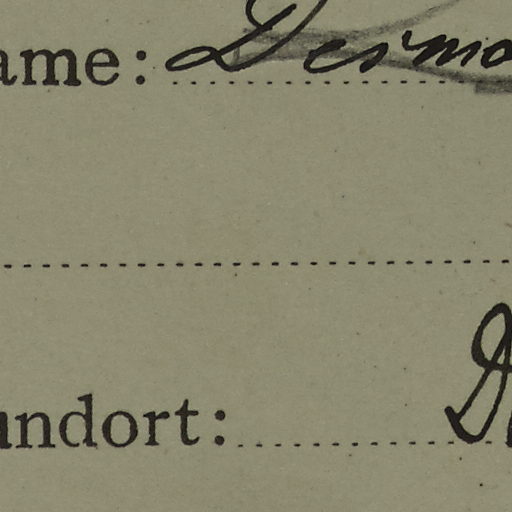 ame: Dermo
undort: D